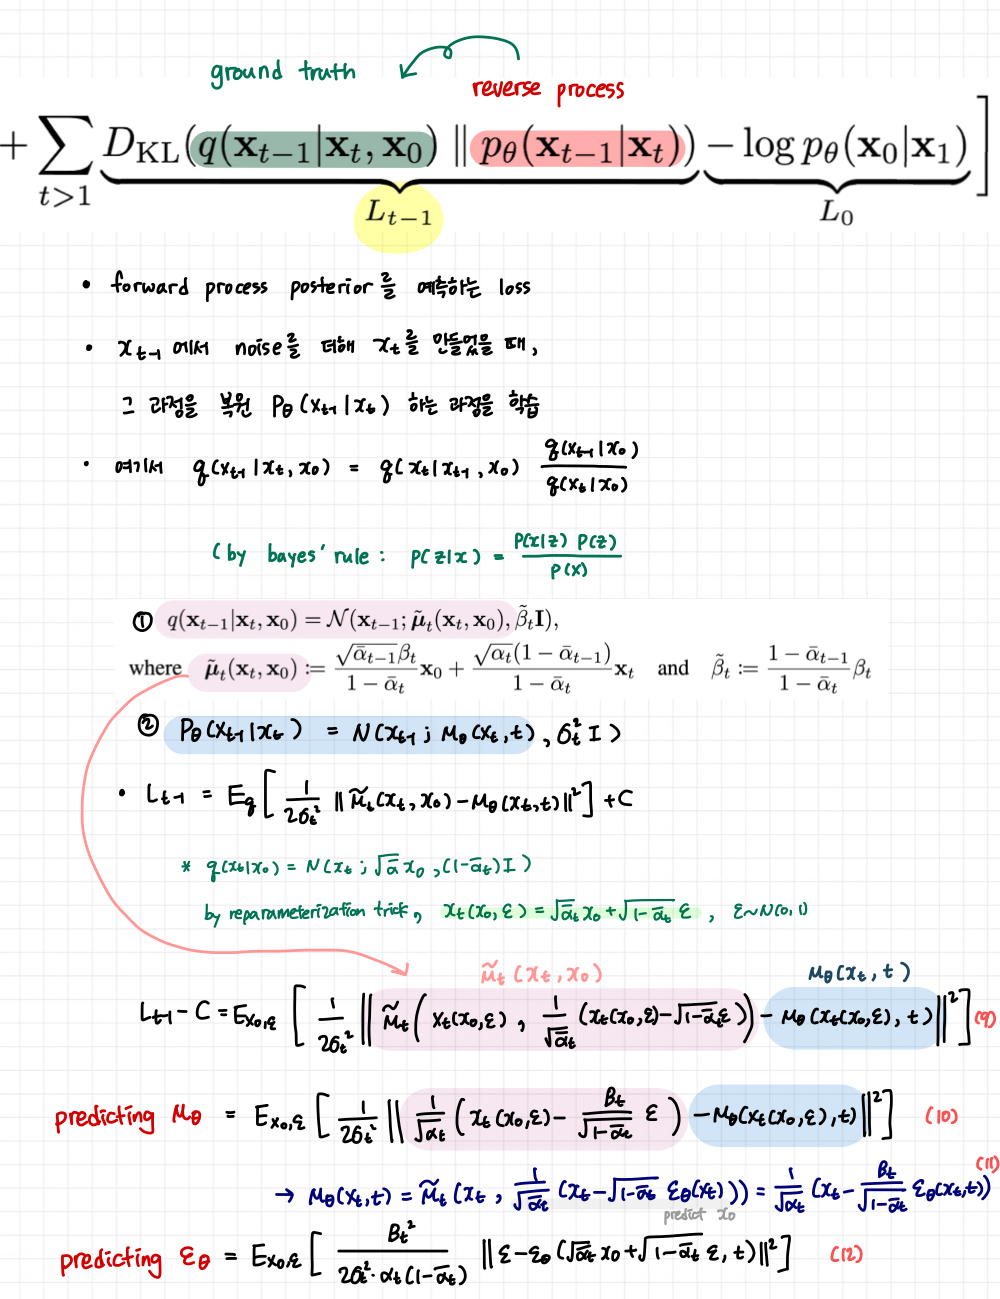 ground truth
reverse process
+ ∑_{t>1} D_KL(q(x_{t−1}|x_t, x_0) ‖ p_θ(x_{t−1}|x_t)) − log p_θ(x_0|x_1) ]
L_{t−1} L_0
• forward process posterior를 예측하는 loss
• x_{t-1} 에서 noise를 더해 x_t를 만들었을 때,
그 과정을 복원 P_θ(x_{t-1}|x_t) 하는 과정을 학습
• 여기서 q(x_{t-1}|x_t, x_0) = q(x_t|x_{t-1}, x_0) q(x_{t-1}|x_0) / q(x_t|x_0)
(by bayes' rule : P(z|x) = P(x|z) P(z) / P(x)
① q(x_{t−1}|x_t, x_0) = N(x_{t−1}; μ̃_t(x_t, x_0), β̃_t I),
where μ̃_t(x_t, x_0) := √ᾱ_{t−1}β_t / (1 − ᾱ_t) x_0 + √α_t(1 − ᾱ_{t−1}) / (1 − ᾱ_t) x_t and β̃_t := (1 − ᾱ_{t−1}) / (1 − ᾱ_t) β_t
② P_θ(x_{t-1}|x_t) = N(x_{t-1} ; μ_θ(x_t, t), σ_t² I)
• L_{t-1} = E_q [ 1/2σ_t² ‖ μ̃_t(x_t, x_0) − μ_θ(x_t, t)‖² ] + C
* q(x_t|x_0) = N(x_t ; √ᾱ x_0, (1-ᾱ_t) I )
by reparameterization trick, x_t(x_0, ε) = √ᾱ_t x_0 + √1-ᾱ_t ε , ε~N(0, 1)
μ̃_t (x_t, x_0) μ_θ(x_t, t)
L_{t-1} − C = E_{x_0,ε} [ 1/2σ_t² ‖ μ̃_t ( x_t(x_0, ε) , 1/√ᾱ_t (x_t(x_0, ε) − √1-ᾱ_t ε) ) − μ_θ(x_t(x_0, ε), t) ‖² ] (9)
predicting μ_θ = E_{x_0,ε} [ 1/2σ_t² ‖ 1/√α_t ( x_t(x_0, ε) − β_t/√1-ᾱ_t ε ) − μ_θ(x_t(x_0, ε), t) ‖² ] (10)
→ μ_θ(x_t, t) = μ̃_t (x_t , 1/√ᾱ_t (x_t − √1-ᾱ_t ε_θ(x_t))) = 1/√α_t (x_t − β_t/√1-ᾱ_t ε_θ(x_t, t)) (11)
predict x_0
predicting ε_θ = E_{x_0,ε} [ β_t² / 2σ_t²·α_t(1-ᾱ_t) ‖ ε − ε_θ (√ᾱ_t x_0 + √1-ᾱ_t ε, t)‖² ] (12)